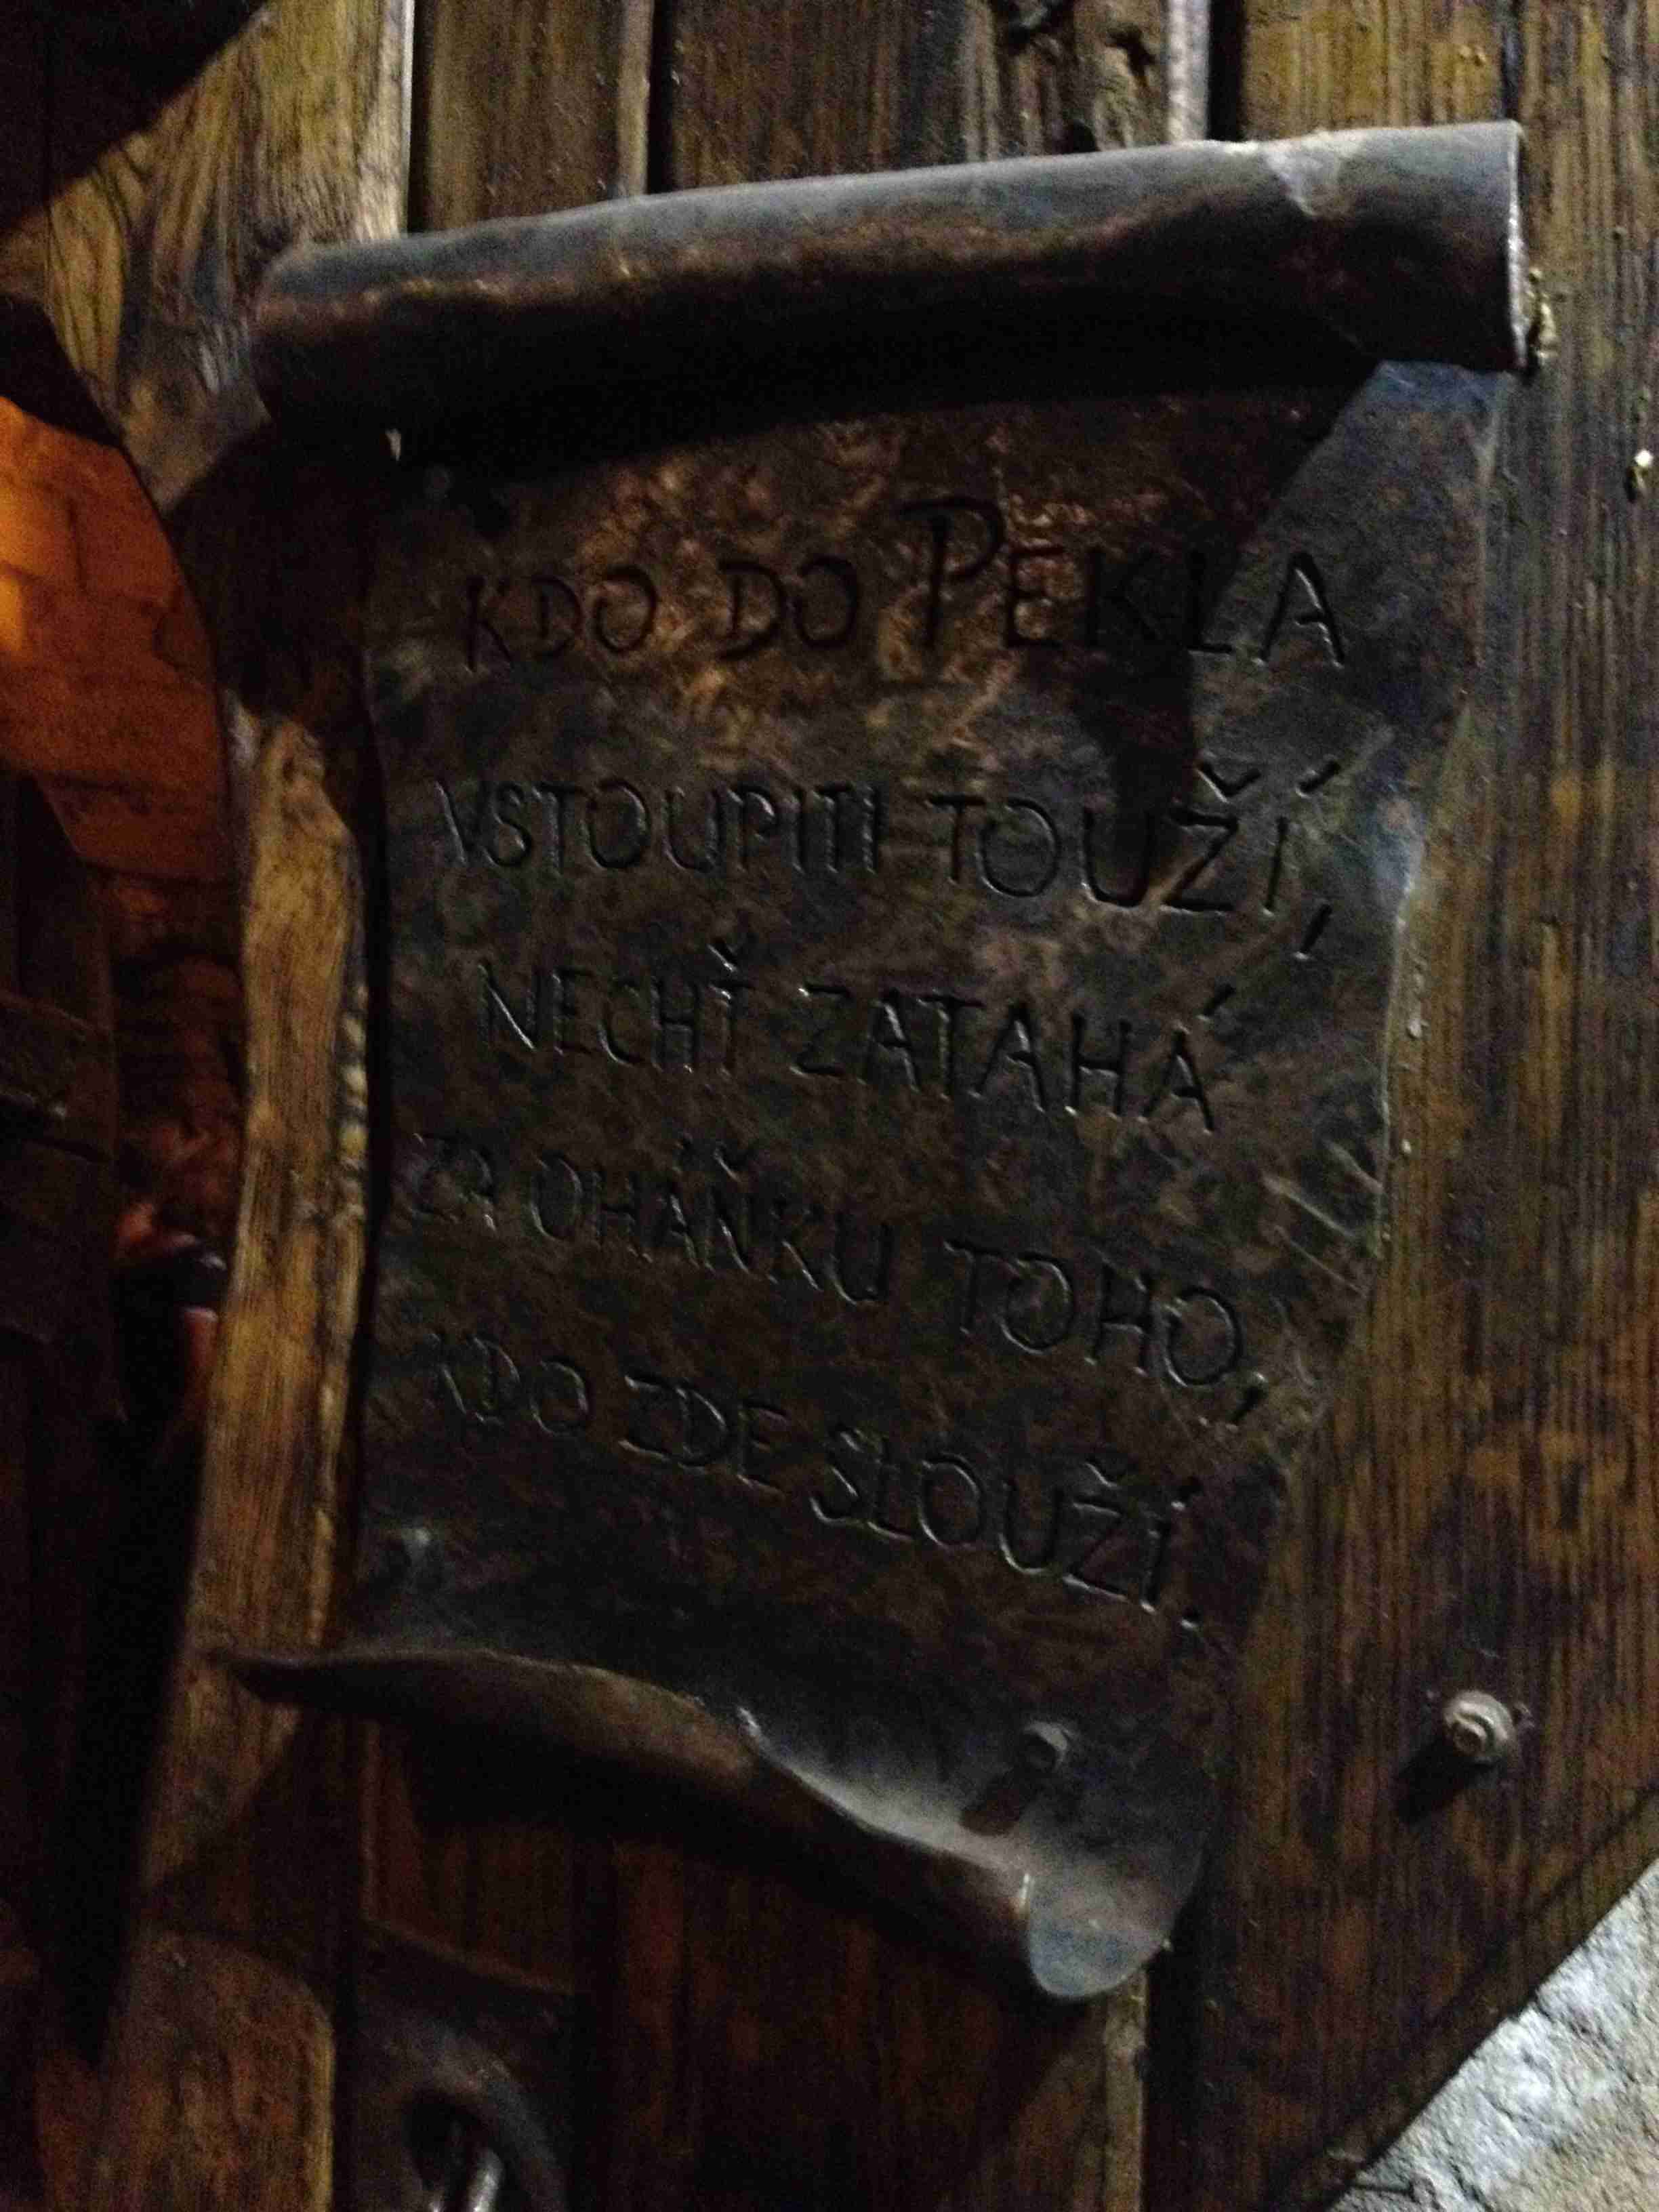 KDO DO PEKLA
VSTOUPITI TOUŽÍ,
NECHŤ ZATAHÁ
ZA OHÁŇKU TOHO,
KDO ZDE SLOUŽÍ.